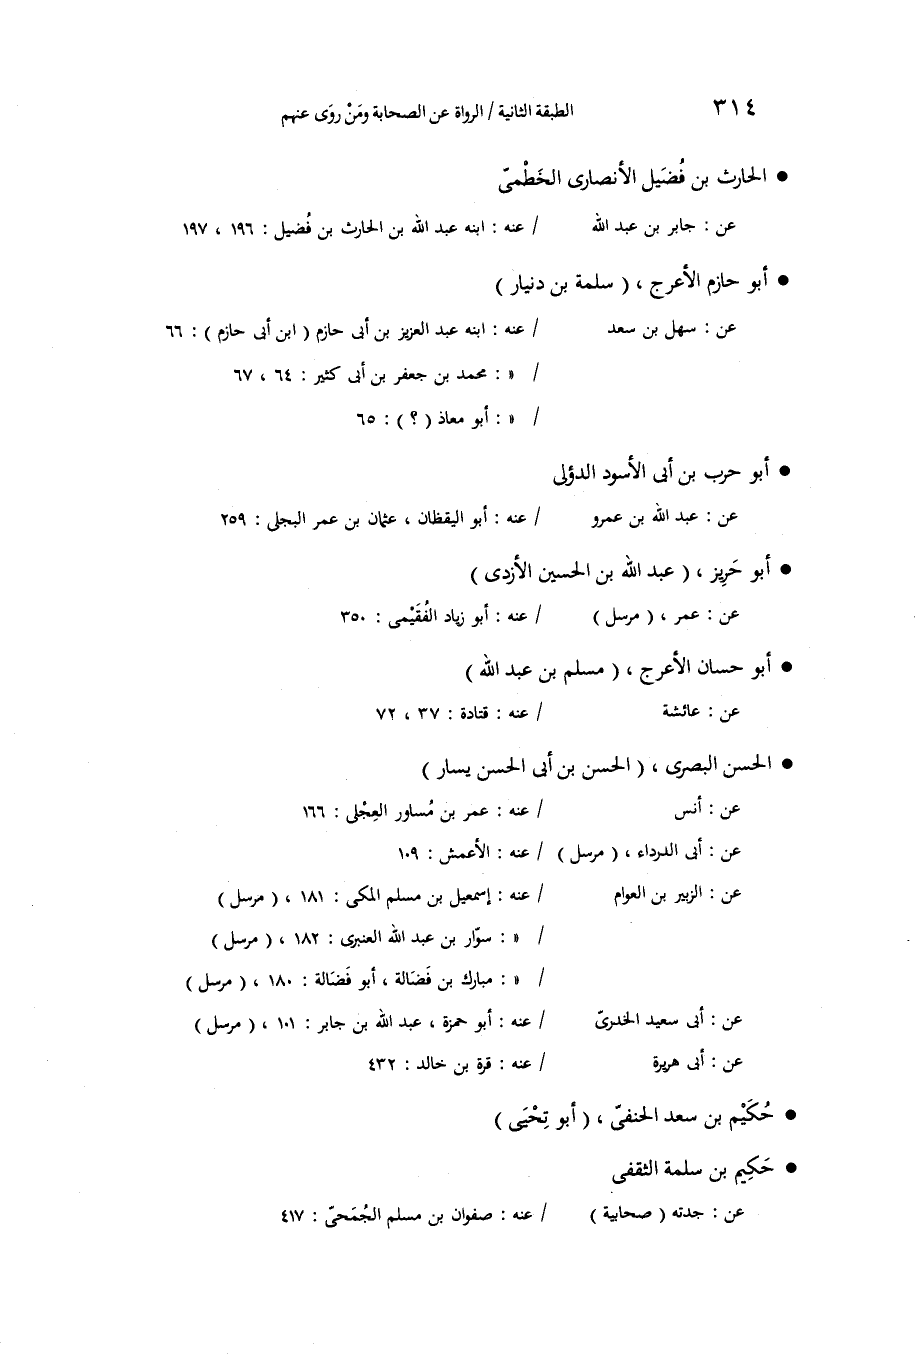 ٣١٤ الطبقة الثانية / الرواة عن الصحابة ومَنْ روَى عنهم
● الحارث بن فُضَيل الأنصارى الخَطْمىّ
عن : جابر بن عبد الله / عنه : ابنه عبد الله بن الحارث بن فُضيل : ١٩٦ ، ١٩٧
● أبو حازم الأعرج ، ( سلمة بن دنيار )
عن : سهل بن سعد / عنه : ابنه عبد العزيز بن أبى حازم ( ابن أبى حازم ) : ٦٦
/ « : محمد بن جعفر بن أبى كثير : ٦٤ ، ٦٧
/ « : أبو معاذ ( ؟ ) : ٦٥
● أبو حرب بن أبى الأسود الدؤلى
عن : عبد الله بن عمرو / عنه : أبو اليقظان ، عثمان بن عمر البجلى : ٢٥٩
● أبو حَرِيز ، ( عبد الله بن الحسين الأزدى )
عن : عمر ، ( مرسل ) / عنه : أبو زياد الفُقَيْمى : ٣٥٠
● أبو حسان الأعرج ، ( مسلم بن عبد الله )
عن : عائشة / عنه : قتادة : ٣٧ ، ٧٢
● الحسن البصرى ، ( الحسن بن أبى الحسن يسار )
عن : أنس / عنه : عمر بن مُساور العِجْلى : ١٦٦
عن : أبى الدرداء ، ( مرسل ) / عنه : الأعمش : ١٠٩
عن : الزبير بن العوام / عنه : إسمعيل بن مسلم المكى : ١٨١ ، ( مرسل )
/ « : سوّار بن عبد الله العنبرى : ١٨٢ ، ( مرسل )
/ « : مبارك بن فَضَالة ، أبو فَضَالة : ١٨٠ ، ( مرسل )
عن : أبى سعيد الخدرىّ / عنه : أبو حمزة ، عبد الله بن جابر : ١٠١ ، ( مرسل )
عن : أبى هريرة / عنه : قرة بن خالد : ٤٣٢
● حُكَيْم بن سعد الحنفىّ ، ( أبو تِحْيَى )
● حَكِيم بن سلمة الثقفى
عن : جدته ( صحابية ) / عنه : صفوان بن مسلم الجُمَحىّ : ٤١٧